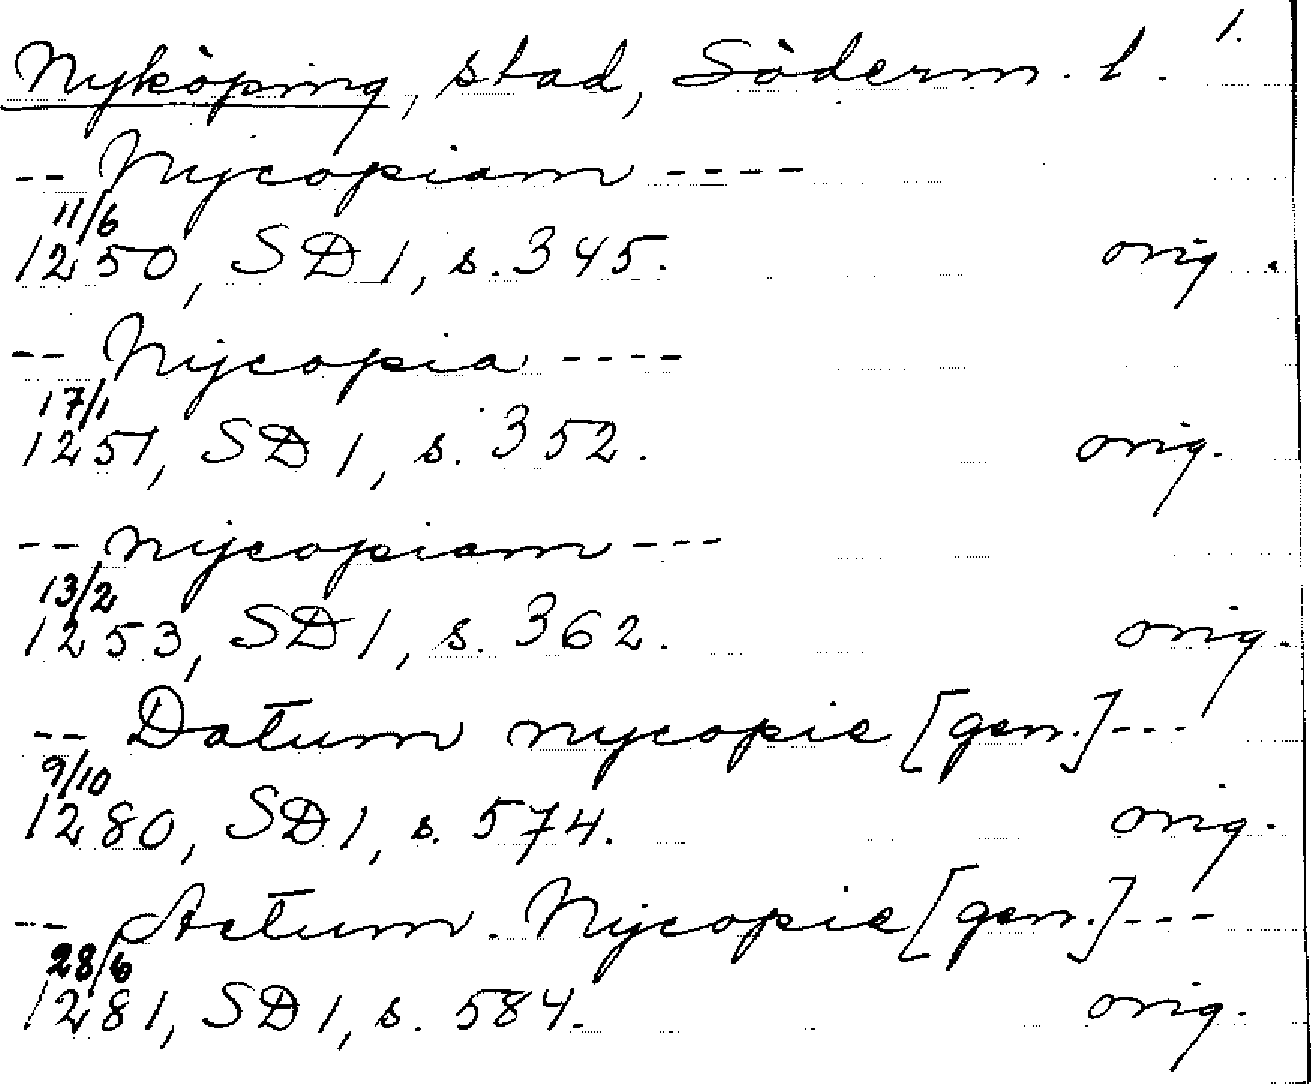 1.
Nyköping, stad, Söderm. l.
-- Nycopiam ----
11/6
1250, SD 1, s. 345. orig.
-- Nycopia ----
17/1
1251, SD 1, s. 352. orig.
-- nycopiam ---
13/2
1253, SD 1, s. 362. orig.
-- Datum nycopie [gen.] ---
9/10
1280, SD 1, s. 574. orig.
-- Actum. Nycopie [gen.] ---
28/6
1281, SD 1, s. 584. orig.